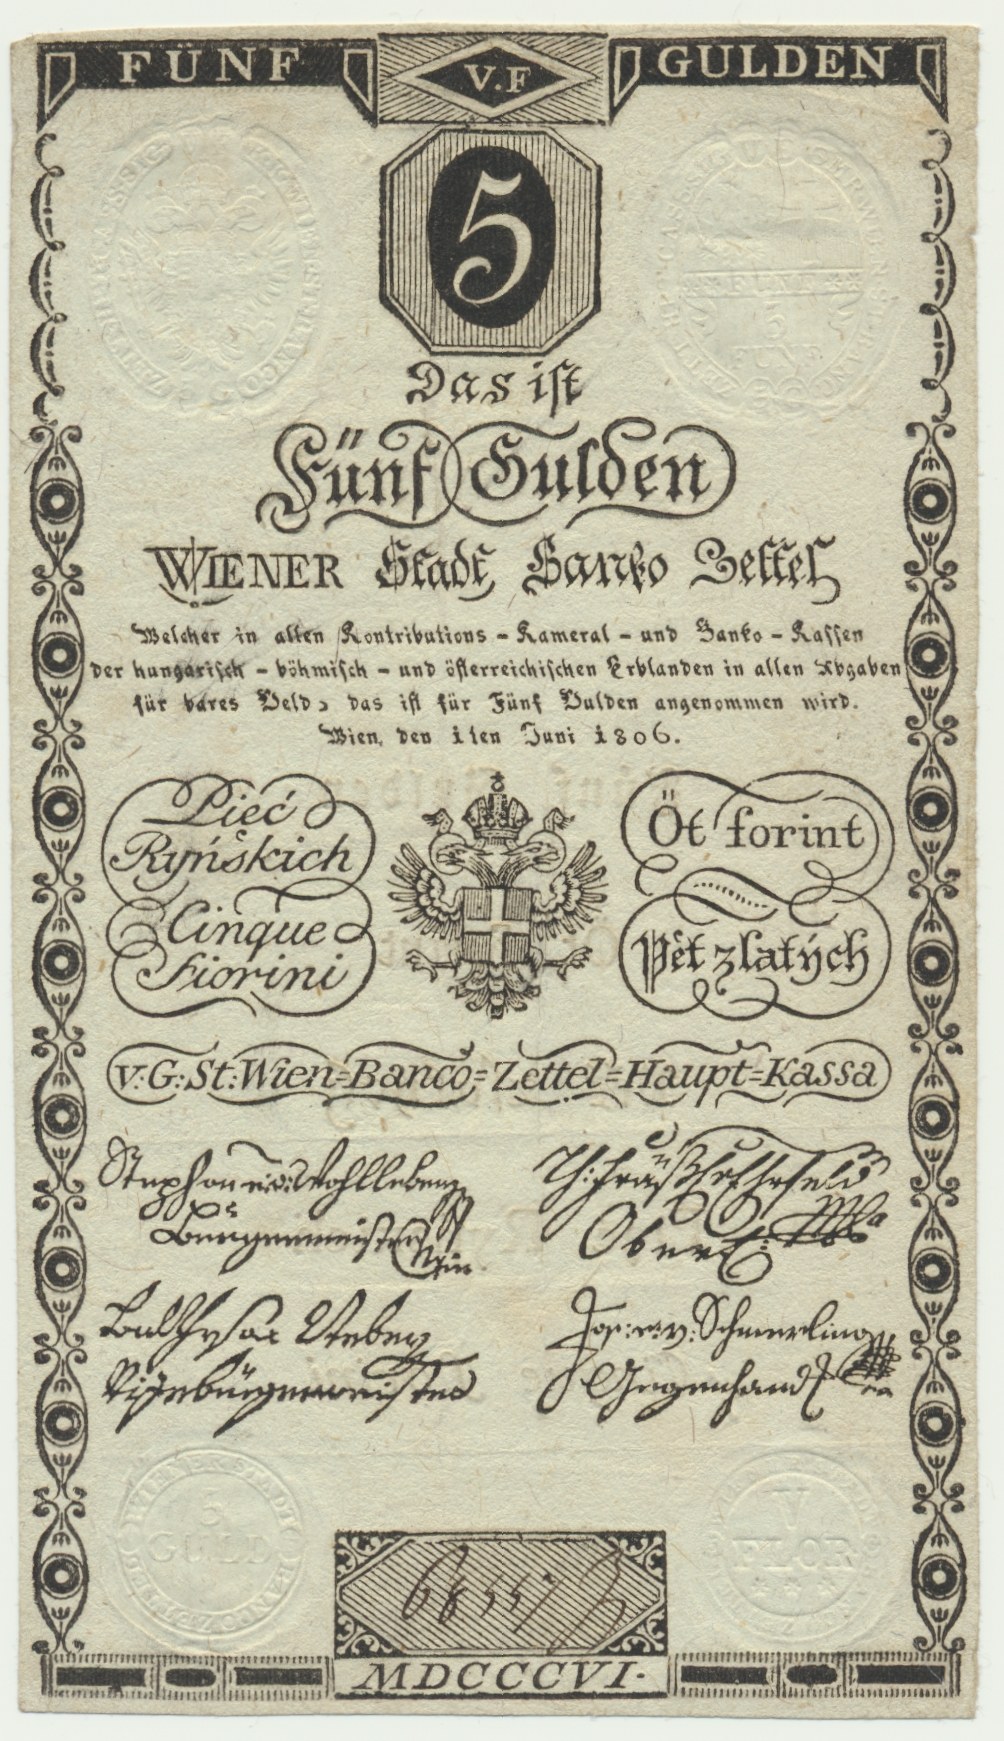 FÜNF V.F GULDEN
5
Das ist
Fünf Gulden
WIENER Stadt Banko Zettel
Welcher in allen Kontributions - Kameral - und Banko - Kassen
der hungarisch - böhmisch - und österreichischen Erblanden in allen Abgaben
für bares Geld, das ist für Fünf Gulden angenommen wird.
Wien, den 1ten Juni 1806.
Pieć
Ryńskich
Cinque
Fiorini
Öt forint
Pět zlatých
V:G:St:Wien=Banco=Zettel=Haupt=Kassa
Stephan v: Wohlleben
Bürgermeister
Wien
Ober
Vizebürgermeister
Jos: v: Schmerling
Gegenhand
FÜNF
5
WIENER STADT
5
GULD
V
FLOR
68557
MDCCCVI.